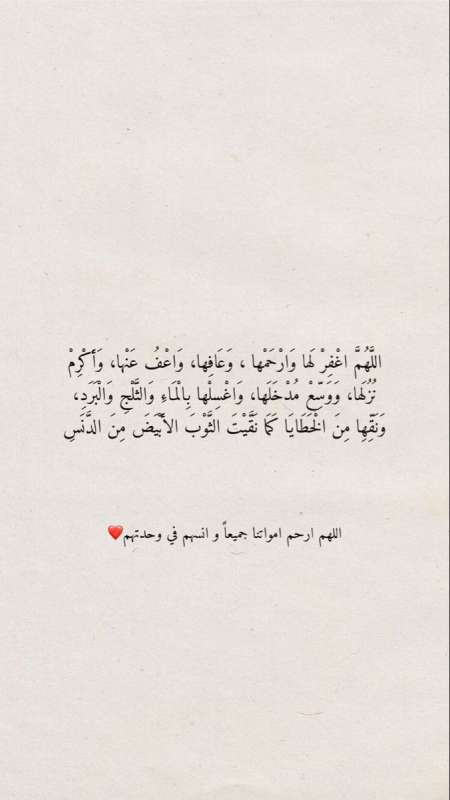 اللَّهُمَّ اغْفِرْ لَها وَارْحَمْها ، وَعَافِها، وَاعْفُ عَنْها، وَأَكْرِمْ
نُزُلَها، وَوَسِّعْ مُدْخَلَها، وَاغْسِلْها بِالْمَاءِ وَالثَّلْجِ وَالْبَرَدِ،
وَنَقِّهِا مِنَ الْخَطَايَا كَمَا نَقَّيْتَ الثَّوْبَ الأَبْيَضَ مِنَ الدَّنَسِ
اللهم ارحم امواتنا جميعاً و انسهم في وحدتهم❤️